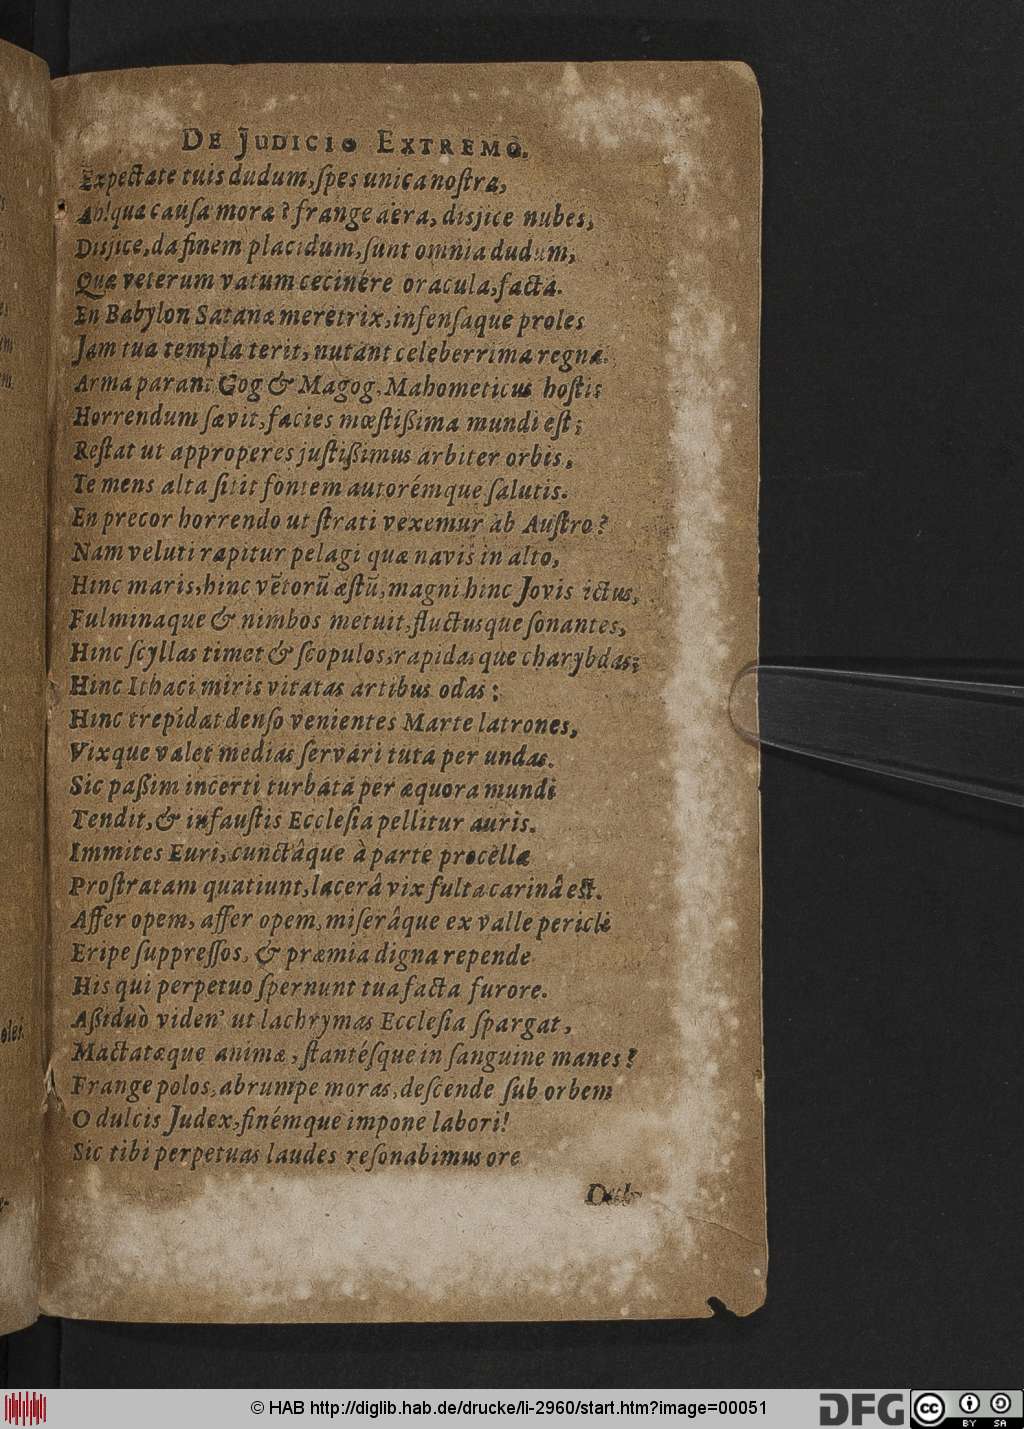 DE JUDICIO EXTREMO.
Expectate tuis dudum, ſpes unica noſtra,
Ah! quæ cauſa moræ? frange aëra, disjice nubes,
Disjice, da finem placidum, ſunt omnia dudum,
Quæ veterum vatum cecinére oracula, facta.
En Babylon Satanæ meretrix, infenſaque proles
Jam tua templa terit, nutant celeberrima regna.
Arma parant Gog & Magog, Mahometicus hoſtis
Horrendum ſævit, facies mœſtißima mundi eſt;
Reſtat ut approperes juſtißimus arbiter orbis,
Te mens alta ſitit fontem autorémque ſalutis.
En precor horrendo ut ſtrati vexemur ab Auſtro?
Nam veluti rapitur pelagi quæ navis in alto,
Hinc maris, hinc vẽtorũ æſtũ, magni hinc Jovis ictus,
Fulminaque & nimbos metuit, fluctusque ſonantes,
Hinc ſcyllas timet & ſcopulos, rapidasque charybdas;
Hinc Ithaci miris vitatas artibus odas;
Hinc trepidat denſo venientes Marte latrones,
Vixque valet medias ſervari tuta per undas.
Sic paßim incerti turbata per æquora mundi
Tendit, & infauſtis Eccleſia pellitur auris.
Immites Euri, cunctâque à parte procellæ
Proſtratam quatiunt, lacerâ vix fulta carinâ eſt.
Affer opem, affer opem, miſerâque ex valle pericli
Eripe ſuppreſſos, & præmia digna repende
His qui perpetuo ſpernunt tua facta furore.
Aßiduò viden' ut lachrymas Eccleſia ſpargat,
Mactatæque animæ, ſtantéſque in ſanguine manes?
Frange polos, abrumpe moras, deſcende ſub orbem
O dulcis Judex, finémque impone labori!
Sic tibi perpetuas laudes reſonabimus ore
© HAB http://diglib.hab.de/drucke/li-2960/start.htm?image=00051
DFG
cc BY SA